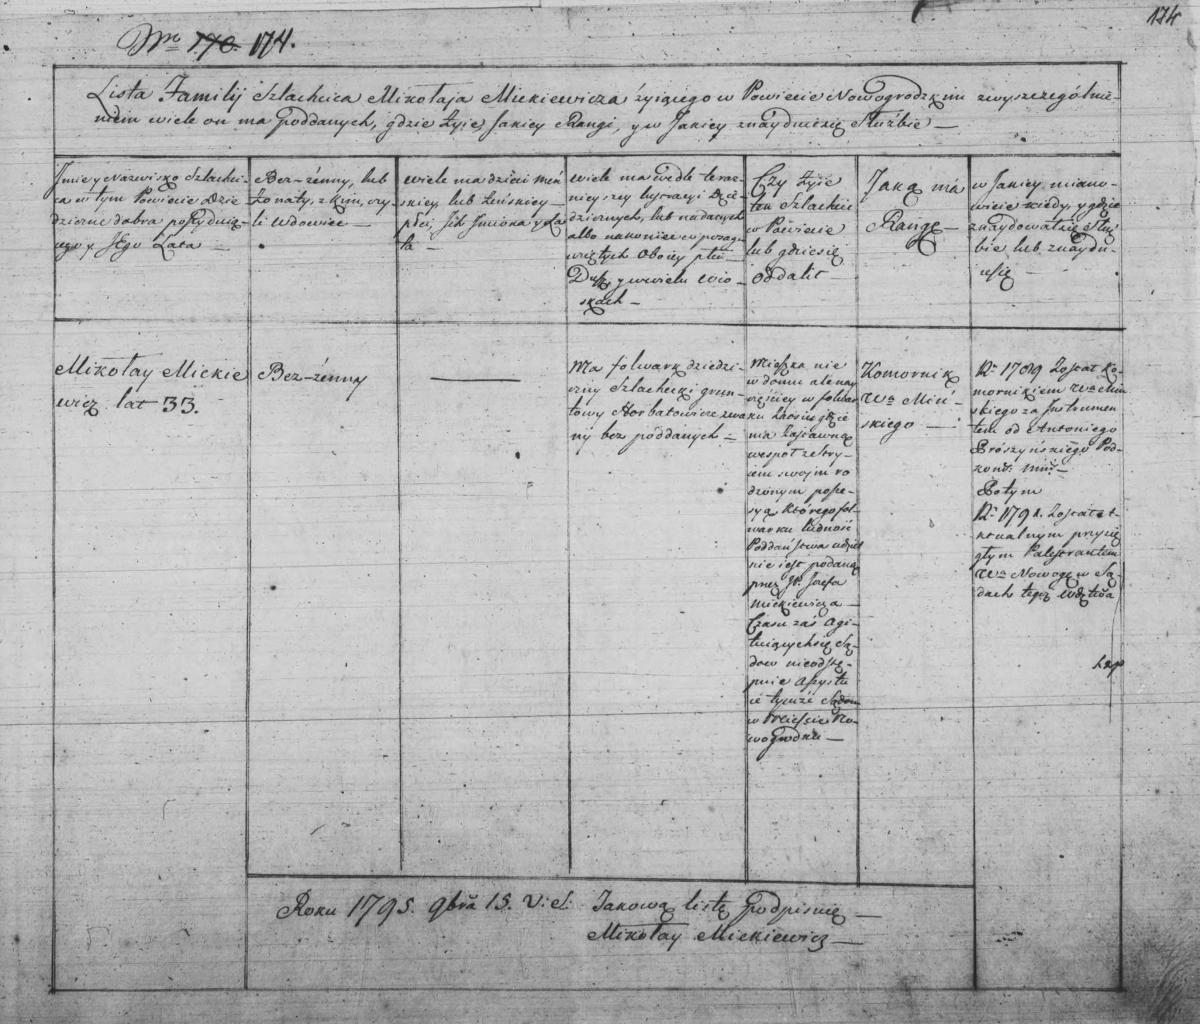 174
Nro 170. 174.
Lista Familij Szlachcica Mikołaja Mickiewicza żyiącego w Powiecie Nowogrodzkim zwyszczegulnie-
niem wiele on ma Poddanych, gdzie żyie Jakiey Rangi, y w Jakiey znayduiesię Służbie —
Jmie y Nazwisko Szlachci-
ca w tym Powiecie Dzie
dziczne dobra posiadaią-
cego y Jego Lata —
Bez-żenny, lub
żonaty, z kim, czy-
li wdowiec —
wiele ma dzieci męs
kiey, lub żeńskiey
płci, Jch Jmiona y La
ta —
wiele ma wedle teraz-
nieyszey lustracyi Dzie-
dzicznych, lub nadanych
albo nakoniec w posag
wziętych oboiey płci —
Dusz, y w wielu wio-
skach —
Czy żyie
ten Szlachcic
w Powiecie
lub gdzie się
oddalił —
Jaką ma
Rangę —
w Jakiey miano-
wicie kiedy, y gdzie
znaydował się Służ
bie lub znaydu-
ie się —
Mikołay Mickie
wicz lat 33.
Bez-żenny
—
Ma folwark dziedzi-
czny Szlachecki grun-
towy Horbatowicze zwa
ny bez poddanych —
Mieszka nie
w domu ale nay
więściey w folwar
ku Zaosiu gdzie
ma Zastawną
wespoł ze stry-
iem swoim ro
dzonym posse-
syą którego fol-
warku ludność
Poddaństwa
nie iest podana
przez JP. Jozefa
Mickiewicza —
Czasu zaś agi-
tuiących się Są-
dow nieodstę-
pnie assystu
ie tymże Sądom
w Mieście No-
wogrodku —
Komornik
Wa Miń-
skiego —
Ru 1789 Został Ko-
mornikiem Wa Miń
skiego za Instrumen-
tem od Antoniego
Prószyńskiego Pod-
kom: Miń: —
Potym
Ru 1791. Został a
ktualnym przysię
głym Palestrantem
Wa Nowogę w Są-
dach tegoż Wdztwa
Roku 1795. 9bra 15. V: S: Jakową listę Podpisuię —
Mikołay Mickiewicz —